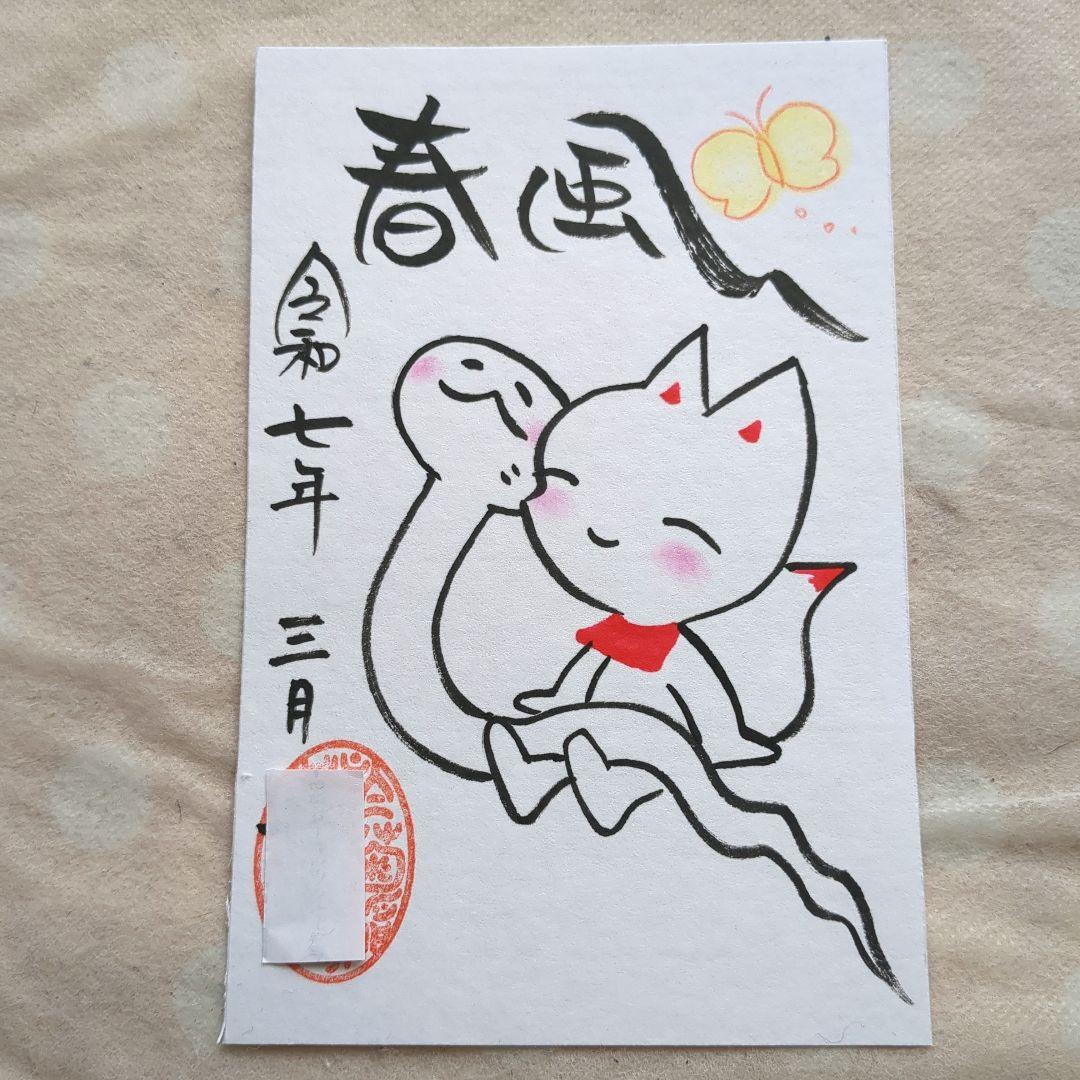 春風
令和七年 三月